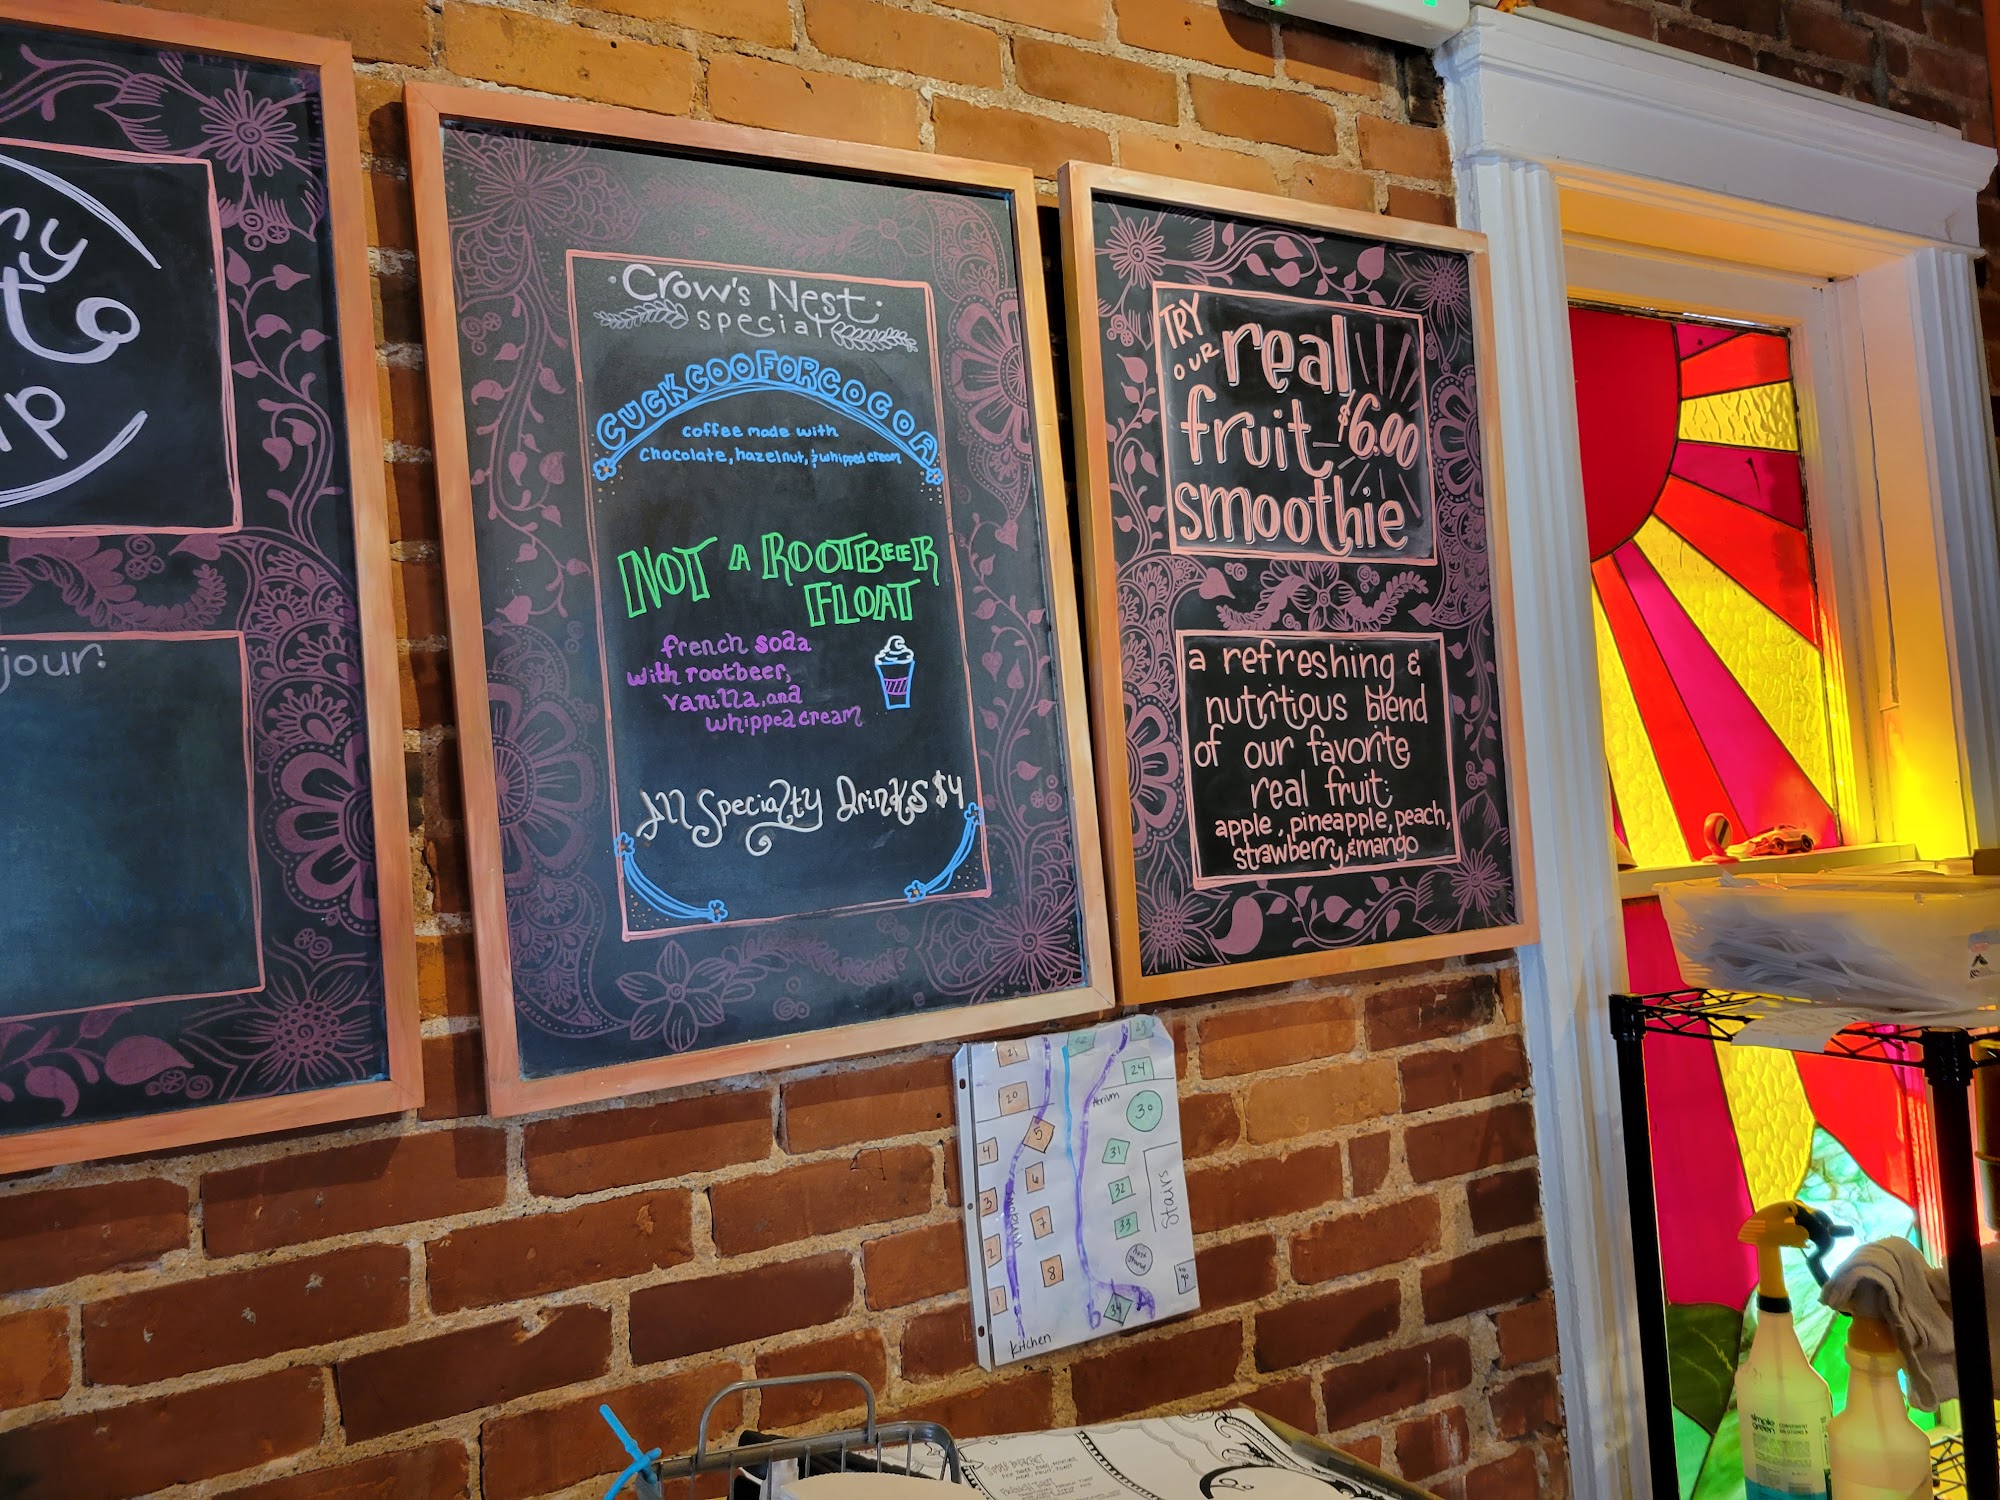 jour:
·Crow's Nest·
special
CUCKCOOFORCOCOA
coffee made with
chocolate, hazelnut, & whipped cream
NOT A ROOTBEER
FLOAT
french soda
with rootbeer,
vanilla, and
whipped cream
All Specialty Drinks $4
TRY
OUR real
fruit $6.00
smoothie
a refreshing &
nutritious blend
of our favorite
real fruit:
apple, pineapple, peach,
strawberry, & mango
21
20
5
4
6
3
7
2
8
1
windows
kitchen
23
24
Atrium
30
31
32
33
Stairs
Host
Stand
to
go
34
simple
green